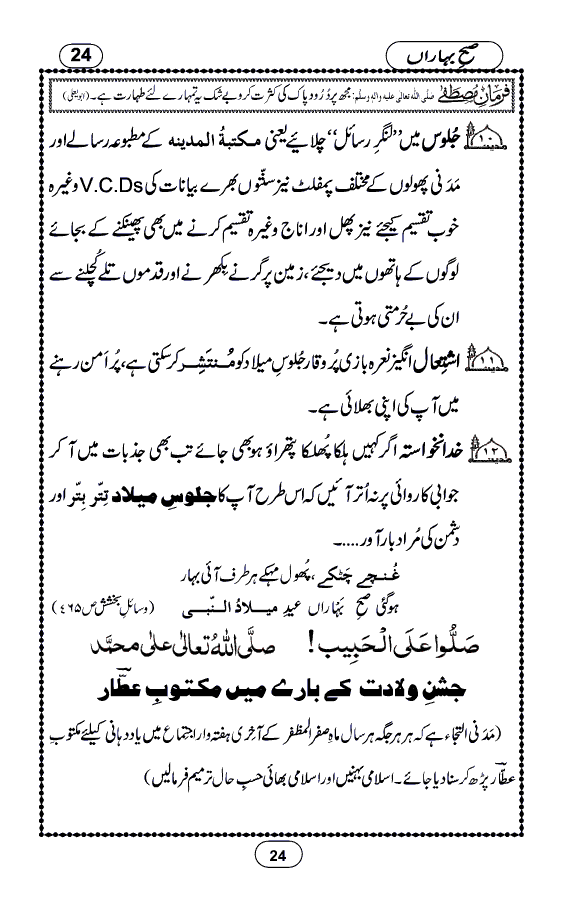 24
صبحِ بہاراں
فرمانِ مصطفےٰ صلی اللہ تعالی علیہ والہ وسلم: مجھ پر دُرُود پاک کی کثرت کرو بے شک یہ تمہارے لئے طہارت ہے۔ (ابو یعلی)
مدینہ ۱۰ جُلوس میں ”لنگرِ رسائل“ چلائیے یعنی مکتبۃُ المدینہ کے مطبوعہ رسالے اور
مَدَنی پھولوں کے مختلف پمفلٹ نیز سنّتوں بھرے بیانات کی V.C.Ds وغیرہ
خوب تقسیم کیجئے نیز پھل اور اناج وغیرہ تقسیم کرنے میں بھی پھینکنے کے بجائے
لوگوں کے ہاتھوں میں دیجئے، زمین پر گرنے بِکھرنے اور قدموں تلے کُچلنے سے
ان کی بے حُرمتی ہوتی ہے۔
مدینہ ۱۱ اشتِعال انگیز نعرہ بازی پُر وقار جُلوسِ میلاد کو مُنتَشِر کر سکتی ہے، پُر اَمن رہنے
میں آپ کی اپنی بھلائی ہے۔
مدینہ ۱۲ خدانخواستہ اگر کہیں ہلکا پُھلکا پتھراؤ ہو بھی جائے تب بھی جذبات میں آ کر
جوابی کاروائی پر نہ اُتر آئیں کہ اس طرح آپ کا جلوسِ میلاد تِتّر بِتّر اور
دشمن کی مُراد بار آور.....۔
غُنچے چَٹکے، پُھول مہکے ہر طرف آئی بہار
ہو گئی صبحِ بَہاراں عیدِ میلادُ النَّبی (وسائلِ بخشش ص ۴۶۵)
صَلُّوا عَلَی الْحَبِیب! صلَّی اللہُ تعالیٰ علیٰ محمَّد
جشنِ ولادت کے بارے میں مکتوبِ عطّار
(مَدَنی التجاء ہے کہ ہر ہر جگہ ہر سال ماہِ صفر المظفر کے آخِری ہفتہ وار اجتماع میں یاد دہانی کیلئے مکتوبِ
عطّار پڑھ کر سنا دیا جائے۔ اسلامی بہنیں اور اسلامی بھائی حسبِ حال ترمیم فرما لیں)
24